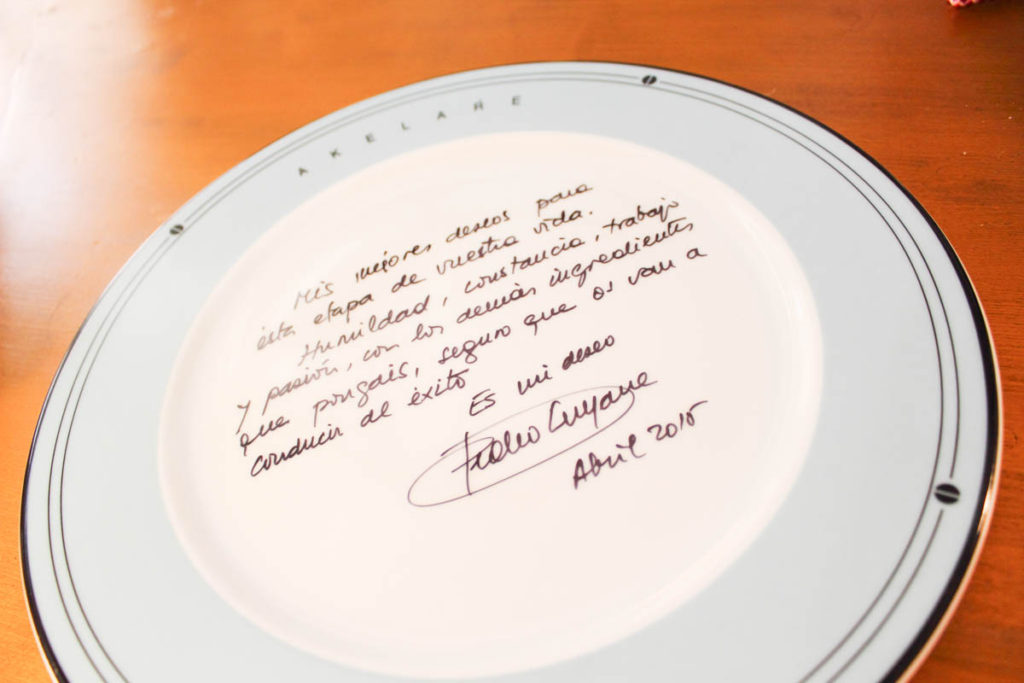 AKELAŔE
Mis mejores deseos para
ésta etapa de vuestra vida.
Humildad, constancia, trabajo
y pasión, con los demás ingredientes
que pongais, seguro que os van a
conducir al éxito
Es mi deseo
Abril 2015